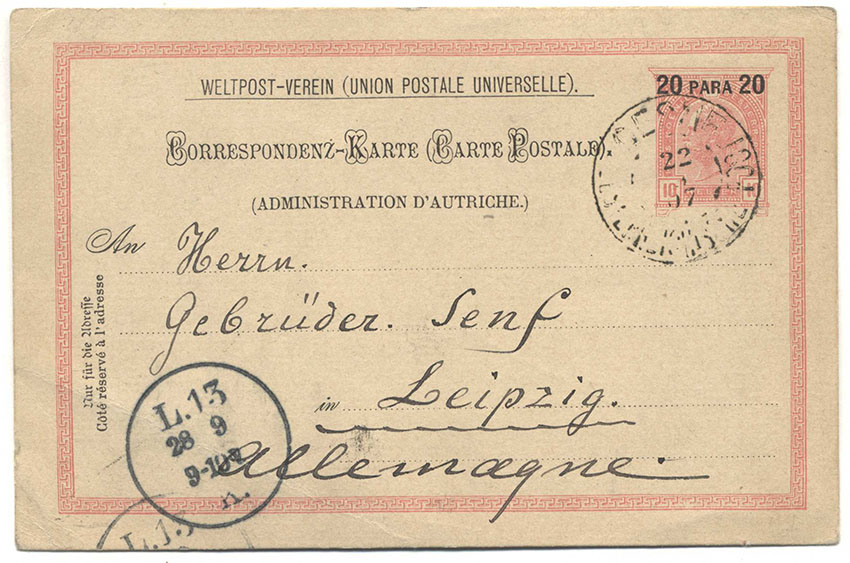 WELTPOST-VEREIN (UNION POSTALE UNIVERSELLE).
20 PARA 20
CORRESPONDENZ-KARTE (CARTE POSTALE).
(ADMINISTRATION D'AUTRICHE.)
10
22
97
An Herrn.
Gebrüder. Senf
in Leipzig.
Allemagne.
Nur für die Adresse
Côté réservé à l'adresse
L.13
28 9
L.13